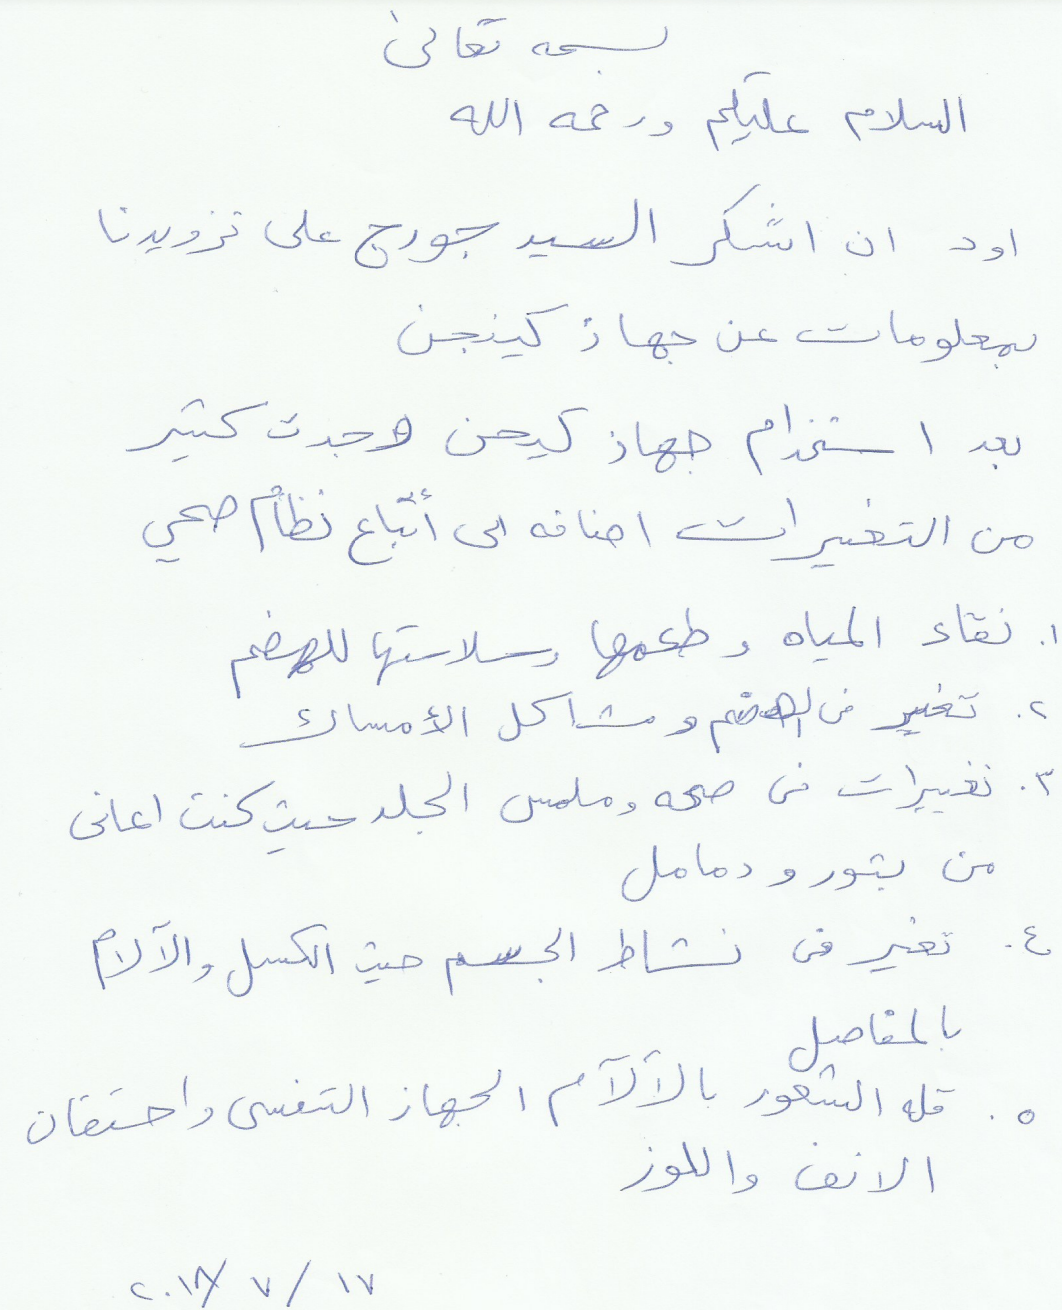 بسمه تعالى
السلام عليكم ورحمه الله
اود ان اشكر السيد جورج على تزويدنا
بمعلومات عن جهاز كينجن
بعد استخدام جهاز كيجن وجدت كثير
من التغيرات اضافه الى أتباع نظام صحي
١. نقاء المياه وطعمها وسلاستها للهضم
٢. تغيير في الهضم ومشاكل الأمساك
٣. تغييرات في صحه وملمس الجلد حيث كنت اعاني
من بثور و دمامل
٤. تغير في نشاط الجسم حيث الكسل والآلام
بالمفاصل
٥. قله الشعور بالآلآم الجهاز التنفسي واحتقان
الانف واللوز
١٧ / ٧ /